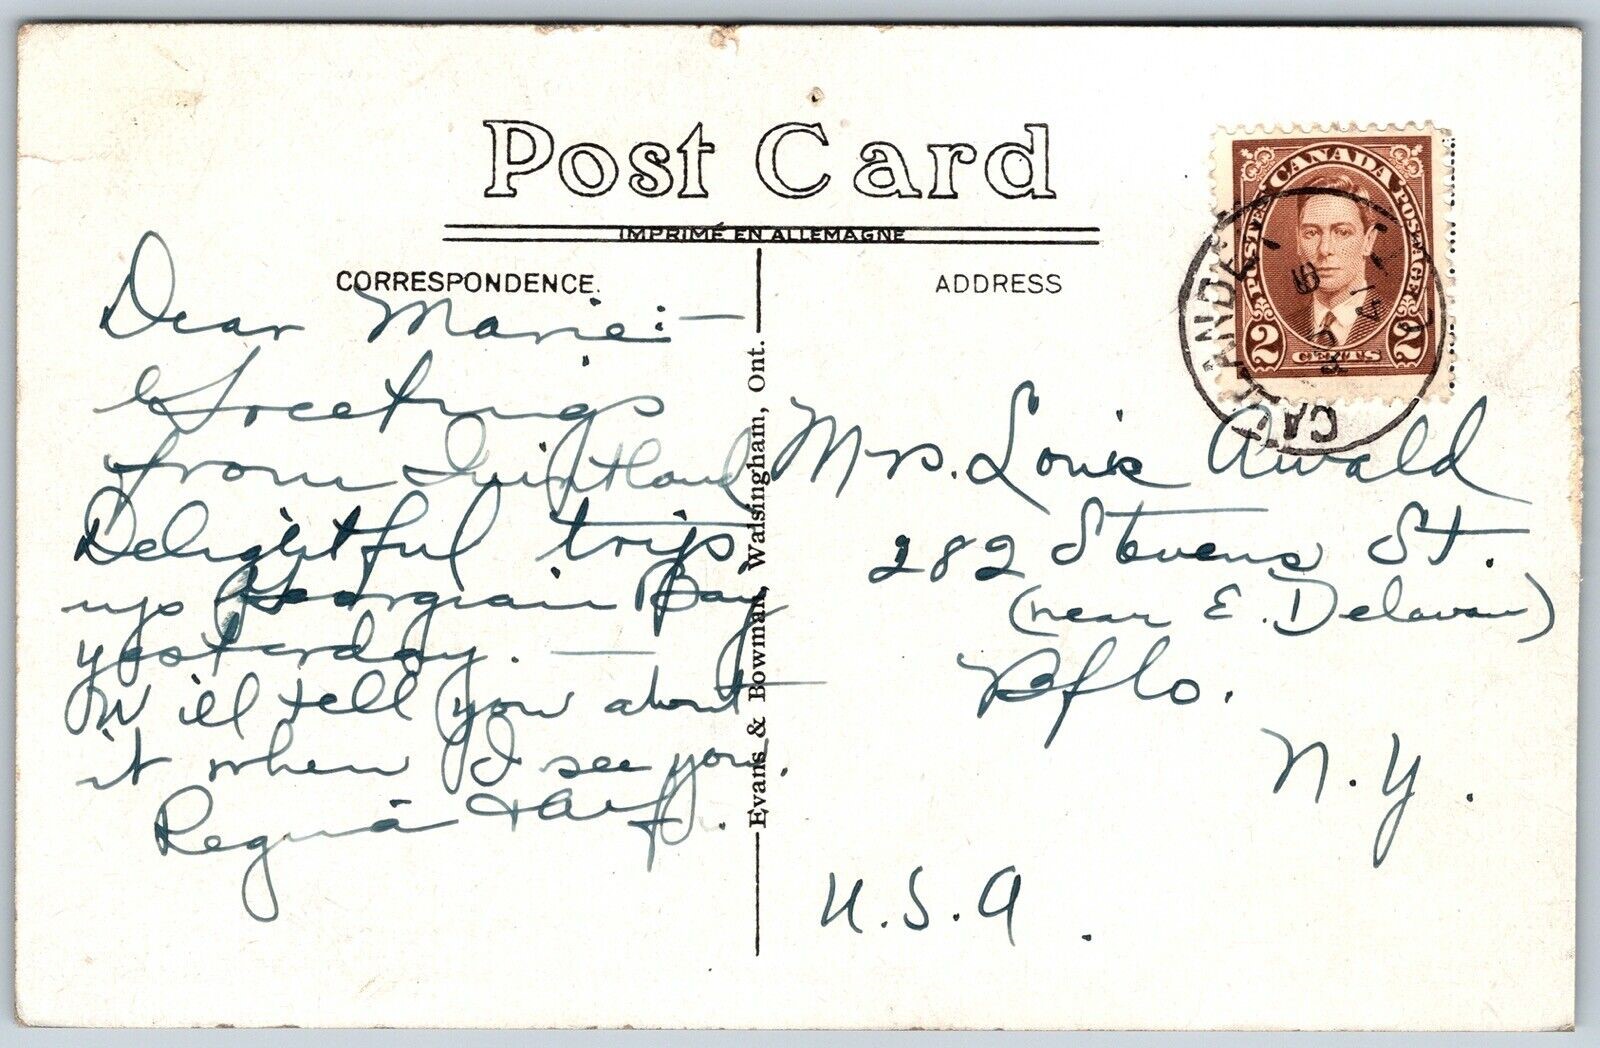 Post Card
IMPRIMÉ EN ALLEMAGNE
CORRESPONDENCE.
ADDRESS
CANADA
POSTES POSTAGE
2 CENTS 2
CALLANDER
Dear Marie:—
Greetings
from Quintland
Delightful trip
up Georgian Bay
yesterday. —
W'ill tell you about
it when I see you.
Regina &
Evans & Bowman, Wadsingham, Ont.
Mrs. Louis Awald
282 Stevens St.
(near E. Delavan)
Bflo.
N.Y.
U.S.A.